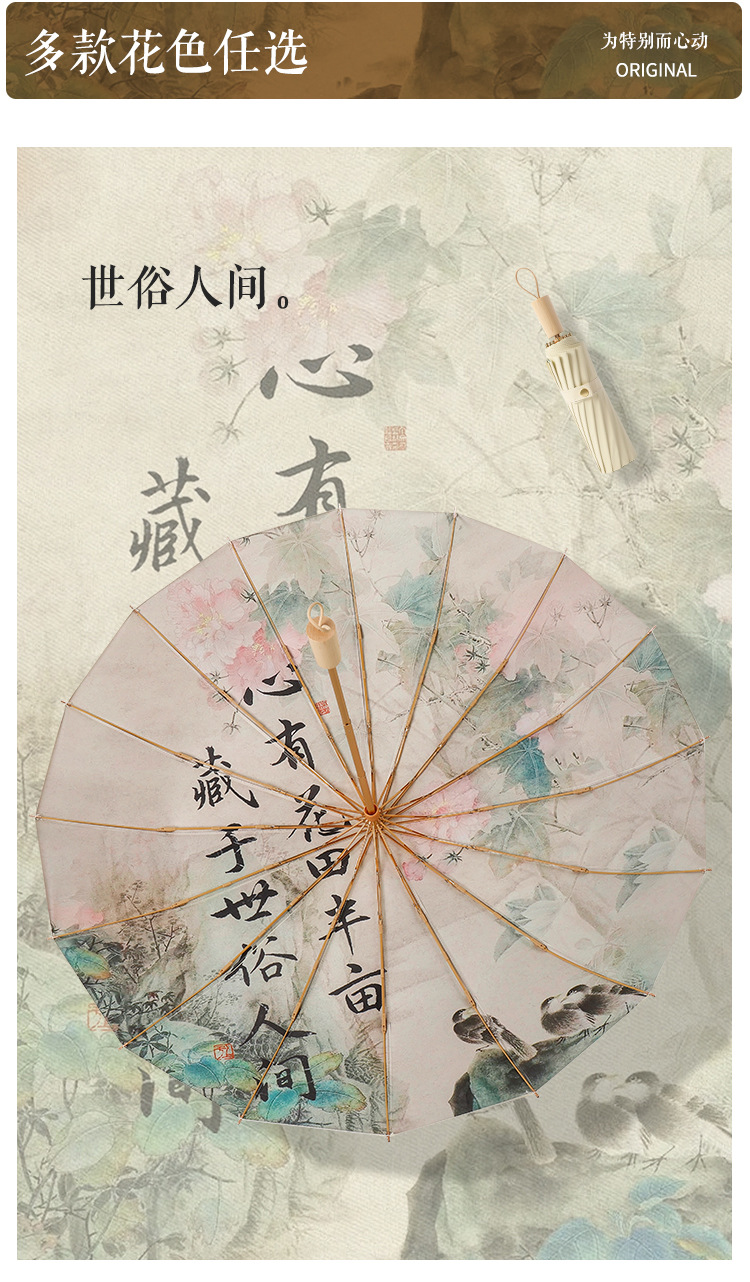 多款花色任选
为特别而心动
ORIGINAL
世俗人间。
心有
藏
心有花田半亩
藏于世俗人间
间